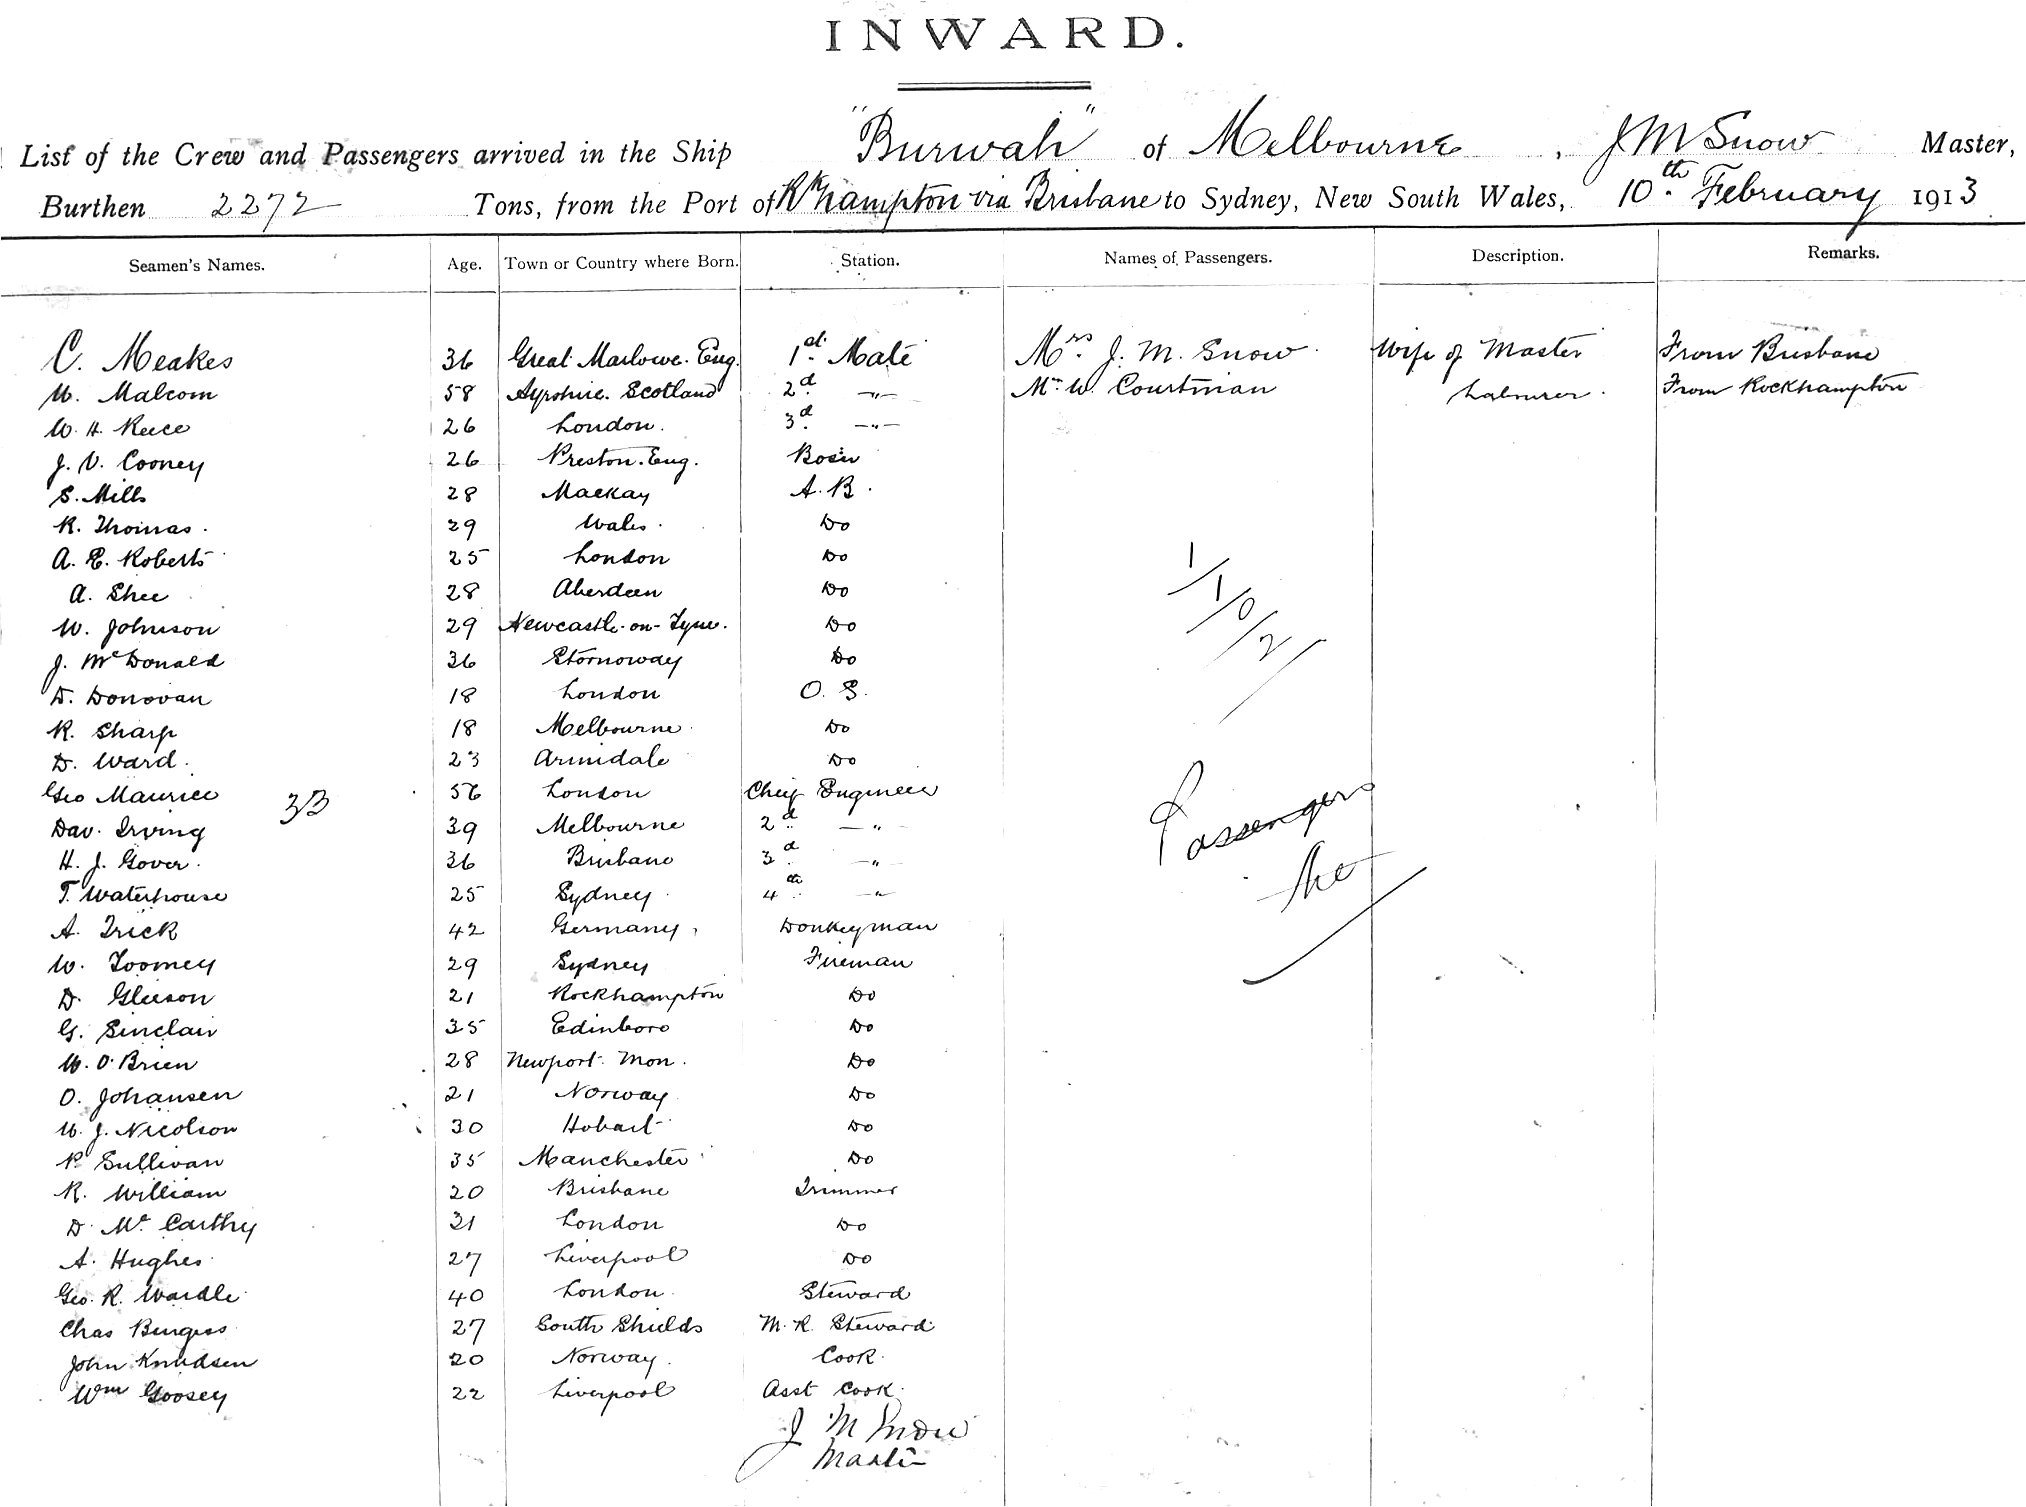 INWARD.
List of the Crew and Passengers arrived in the Ship "Burwah" of Melbourne, J M Snow Master,
Burthen 2272 Tons, from the Port of R'hampton via Brisbane to Sydney, New South Wales, 10th February 1913
Seamen's Names. Age. Town or Country where Born. Station. Names of Passengers. Description. Remarks.
C. Meakes 36 Great Marlowe. Eng. 1st Mate Mrs. J. M. Snow Wife of Master From Brisbane
W. Malcom 58 Ayrshire. Scotland 2d " Mr. W. Courtman Labourer. From Rockhampton
W. H. Reece 26 London. 3d "
J. V. Cooney 26 Preston. Eng. Bosn
S. Mills 28 Mackay A. B.
R. Thomas. 29 Wales. Do
A. E. Roberts 25 London Do
A. Shee 28 Aberdeen Do
W. Johnson 29 Newcastle-on-Tyne. Do
J. McDonald 36 Stornoway Do
D. Donovan 18 London O. S.
R. Sharp 18 Melbourne Do
D. Ward. 23 Armidale Do
Geo Maurice 56 London Chief Engineer
33
Dav. Irving 39 Melbourne 2d "
H. J. Gover. 36 Brisbane 3d "
T. Waterhouse 25 Sydney 4th "
A. Trick 42 Germany Donkeyman
W. Toomey 29 Sydney Fireman
D. Gleeson 21 Rockhampton Do
G. Sinclair 35 Edinboro Do
W. O'Brien 28 Newport. Mon. Do
O. Johansen 21 Norway Do
W. J. Nicolson 30 Hobart Do
P. Sullivan 35 Manchester Do
R. William 20 Brisbane Trimmer
D. McCarthy 31 London Do
A. Hughes 27 Liverpool Do
Geo. R. Wardle 40 London Steward
Chas Burgess 27 South Shields M. R. Steward
John Knudsen 20 Norway. Cook
Wm Goosey 22 Liverpool Asst Cook
J M Snow
Master
1/1/0/2/
Passengers